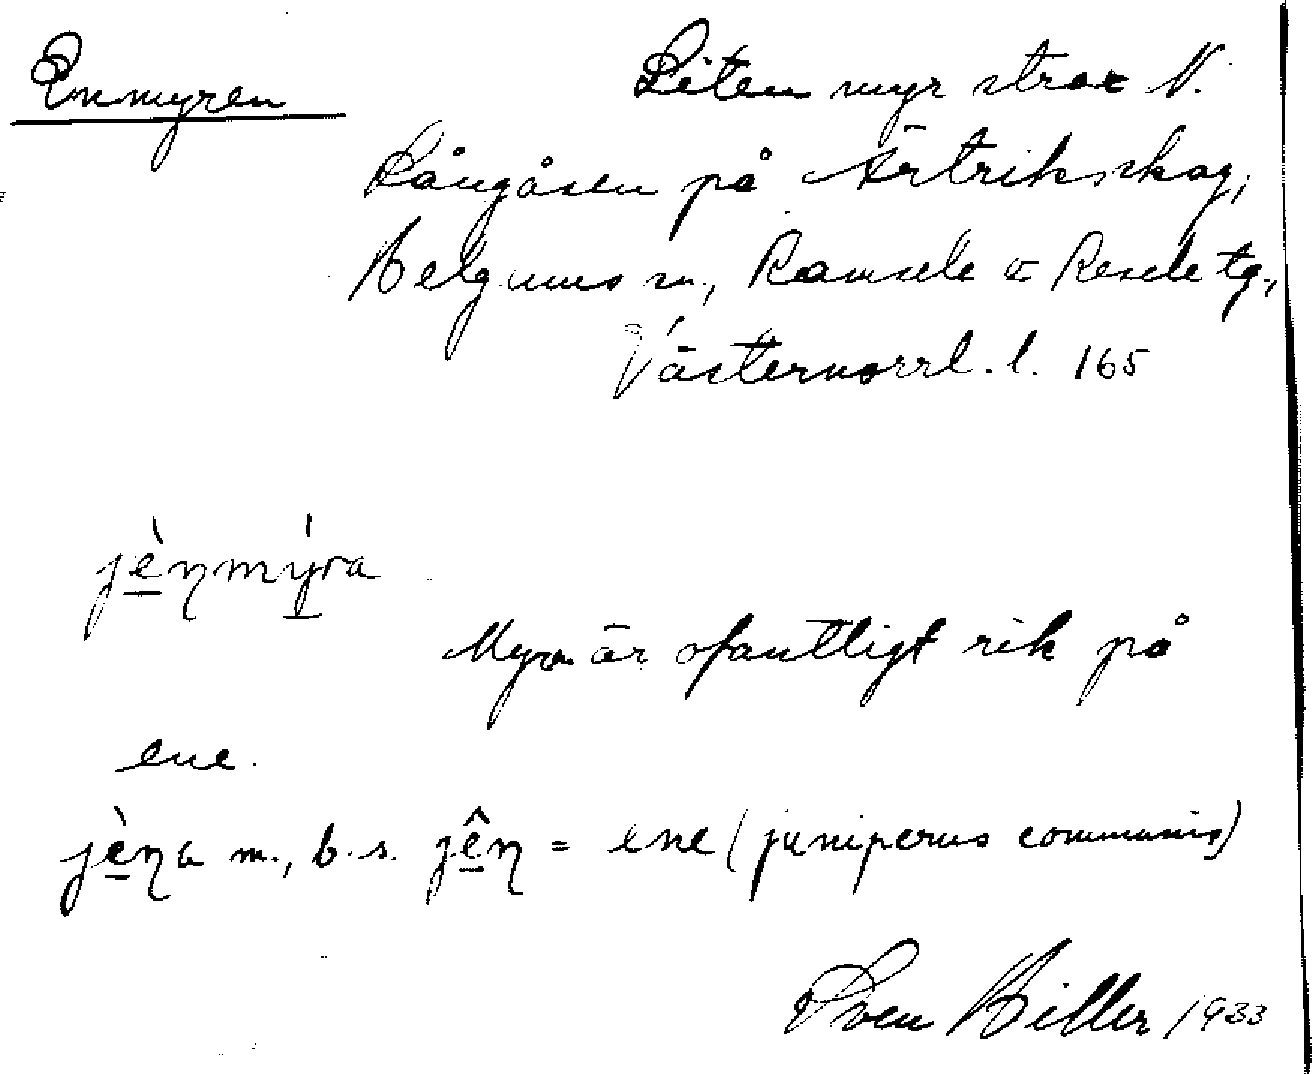 Enmyren
Liten myr strax N.
Långåsen på Ärtrikskog,
Helgums sn., Ramsele & Resele tg.,
Västernorrl. l. 165
jènmýra
Myra är ofantligt rik på
ene.
jèna m., b. s. jên = ene (juniperus communis)
Sven Hiller 1933